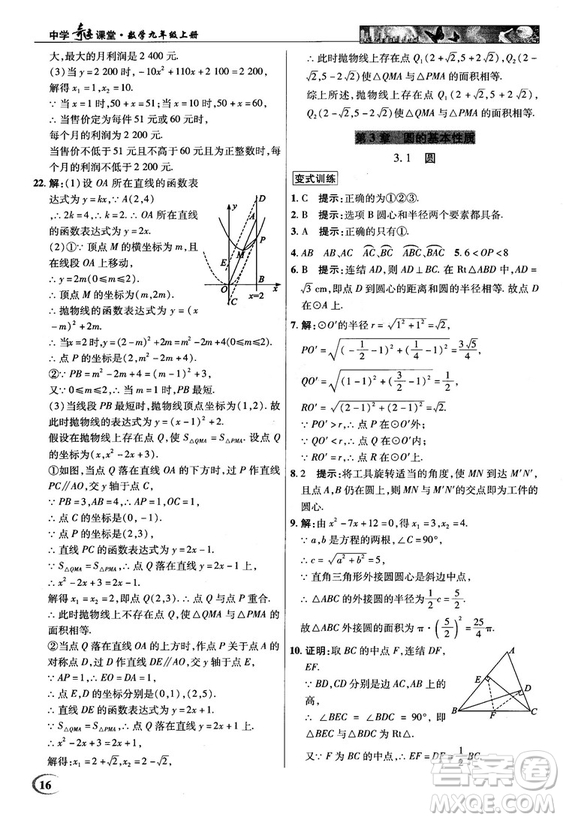 中学奇迹课堂·数学九年级上册
大,最大的月利润是 2 200 元.
(3)当 y=2 200 时,-10x²+110x+2 100=2 200,
解得 x₁=1,x₂=10.
∵ 当 x=1 时,50+x=51;当 x=10 时,50+x=60,
∴ 当售价定为每件 51 元或 60 元时,
每个月的利润为 2 200 元.
当售价不低于 51 元且不高于 60 元且为整数时,每个月的利润不低于 2 200 元.
22. 解:(1)设 OA 所在直线的函数表
达式为 y=kx,∵ A(2,4),
∴2k=4,∴k=2,∴ OA 所在直线
的函数表达式为 y=2x.
(2)①∵ 顶点 M 的横坐标为 m,且
在线段 OA 上移动,
∴ y=2m(0≤m≤2).
∴ 顶点 M 的坐标为(m,2m).
∴ 抛物线的函数表达式为 y=(x
-m)²+2m.
∴ 当 x=2 时,y=(2-m)²+2m=m²-2m+4(0≤m≤2).
∴ 点 P 的坐标是(2,m²-2m+4).
②∵ PB=m²-2m+4=(m-1)²+3,
又∵ 0≤m≤2,∴ 当 m=1 时,PB 最短.
(3)当线段 PB 最短时,抛物线顶点坐标为(1,2),
此时抛物线的函数表达式为 y=(x-1)²+2.
假设在抛物线上存在点 Q,使 S△QMA=S△PMA.设点 Q
的坐标为(x,x²-2x+3).
①如图,当点 Q 落在直线 OA 的下方时,过点 P 作直线
PC∥AO,交 y 轴于点 C.
∵ PB=3,AB=4,∴ AP=1,∴ OC=1,
∴ 点 C 的坐标是(0,-1).
∵ 点 P 的坐标是(2,3),
∴ 直线 PC 的函数表达式为 y=2x-1.
∵ S△QMA=S△PMA,∴ 点 Q 落在直线 y=2x-1 上.
∴ x²-2x+3=2x-1.
解得 x₁=2,x₂=2,即点 Q 的坐标是(2,3).
∴ 点 Q 与点 P 重合.
∴ 此时抛物线上不存在点 Q,使△QMA 与△PMA 的
面积相等.
②当点 Q 落在直线 OA 的上方时,作点 P 关于点 A 的
对称点 D,过点 D 作直线 DE∥AO,交 y 轴于点 E.
∵ AP=1,∴ EO=DA=1,
∴ 点 E,D 的坐标分别是(0,1),(2,5).
∴ 直线 DE 的函数表达式为 y=2x+1.
∵ S△QMA=S△PMA,∴ 点 Q 落在直线 y=2x+1 上.
∴ x²-2x+3=2x+1.
解得:x₁=2+√2,x₂=2-√2,
y
A
P
M
B
O
E
C
x=2
∴ 此时抛物线上存在点 Q₁(2+√2,5+2√2),Q₂(2-√2,
5-2√2),使△QMA 与△PMA 的面积相等.
综上所述,抛物线上存在点 Q₁(2+√2,5+2√2),Q₂(2-√2,5-2√2),使△QMA 与△PMA 的面积相等.
第 3 章 圆的基本性质
3.1 圆
变式训练
1. C 提示:正确的为①②③.
2. B 提示:选项 B 圆心和半径两个要素都具备.
3. A 提示:正确的只有①.
4. AB AB,AC BC,BAC 5. 6<OP<8
6. B 提示:连结 AD,则 AD⊥BC. 在 Rt△ABD 中,AD=
√3 cm,即点 D 到圆心的距离和圆的半径相等,故点 D
在⊙A 上.
7. 解:⊙O′的半径 r=√(1²+1²)=√2,
PO′=√((-1/2-1)²+(1-2)²)
QO′=√((2-1)²+(3/2-1)²)
RO′=√((2-1)²+(2-1)²)=√2,
∵ PO′>r,∴ 点 P 在⊙O′外;
∵ QO′<r,∴ 点 Q 在⊙O′内;
∵ RO′=r,∴ 点 R 在⊙O′上.
8. 2 提示:将工具旋转适当的角度,使 MN 到达 M′N′,
且点 A,B 仍在工件的边上,MN 与 M′N′的交点即为工件的
圆心.
9. 解:由 x²-7x+12=0,得 x₁=3,x₂=4.
∵ a,b 是方程的两根,∠C=90°,
∴ c=√(a²+b²)=5.
∵ 直角三角形外接圆的直径为斜边边长,
∴ △ABC 的外接圆的半径为 5/2.
故△ABC 的外接圆的面积为 π·(5/2)²=25/4π.
10. 证明:取 BC 的中点 F,连结 EF,
DF.
∵ BD,CE 分别是△ABC
的高,
∴ ∠BEC=∠BDC=90°,
∴ △BEC 和△BDC 是 Rt△.
又∵ 点 F 为 BC 的中点,∴ EF=DF=1/2BC=BF=
A
E
D
B
F
C
16
答案圈
MXQE.COM